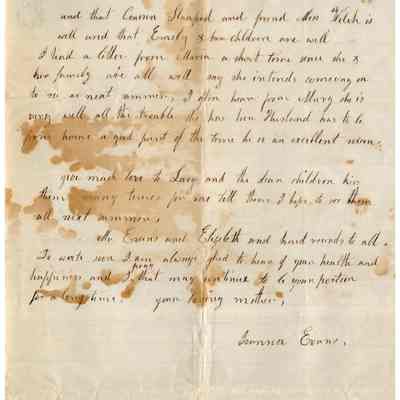 and that Cousin Stanford and friend Miss Welch is
well and that Emely & two children are well
I had a letter from Maria a short time since she &
her family are all well say she intends coming on
to see us next summer, I often hear from Mary she is
very well all the trouble she has her Husband has to be
from home a good part of the time he is an excellent man
give much love to Lucy and the dear children kiss
them many times for me tell them I hope to see them
all next summer,
Mr Evans and Elizabeth and kind rounds to all.
Do write son I am always glad to hear of your health and
happiness and I pray that may continue to be your portion
for a long time. your loving mother,
Evans.